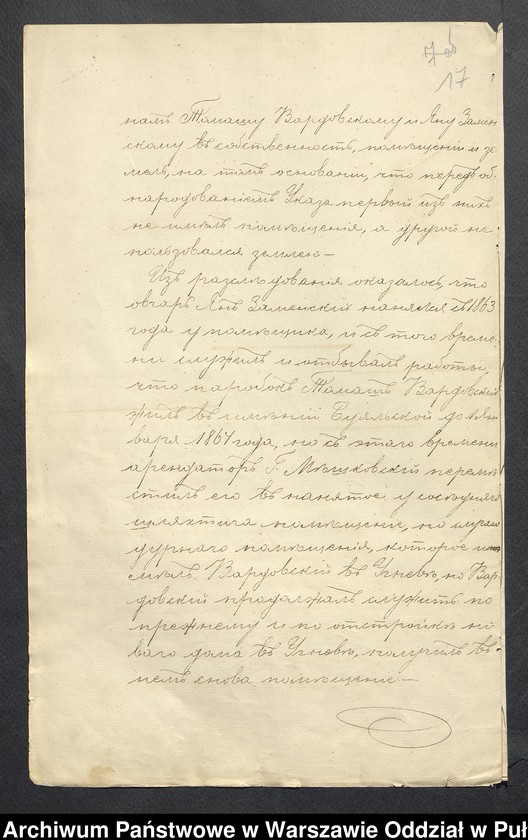 17
намъ Томашу Вардовскому и Яну Замен
скому въ собственность, помѣщеній и зе
мель, на томъ основаніи, что передъ об
народованіемъ Указа первый изъ нихъ
не имѣлъ помѣщенія, а другой не
пользовался землею —
Изъ разслѣдованія оказалось, что
овчаръ Янъ Заменскій нанялся съ 1863
года у помѣщика, и съ того време
ни служилъ и отбывалъ работы,
что паробокъ Томашъ Вардовскій
жилъ въ имѣніи до 1 Ян
варя 1864 года, но съ этаго времени
арендаторъ Г. Мѣшковскій перемѣ
стилъ его въ нанятое у сосѣдняго
шляхтича помѣщеніе, по случаю
дурнаго помѣщенія, которое
имѣлъ Вардовскій въ Угневѣ, но Вар
довскій продолжалъ служить по
прежнему и по отстройкѣ но
ваго дома въ Угневѣ, получилъ въ
немъ снова помѣщеніе —
Archiwum Państwowe w Warszawie Oddział w Puł